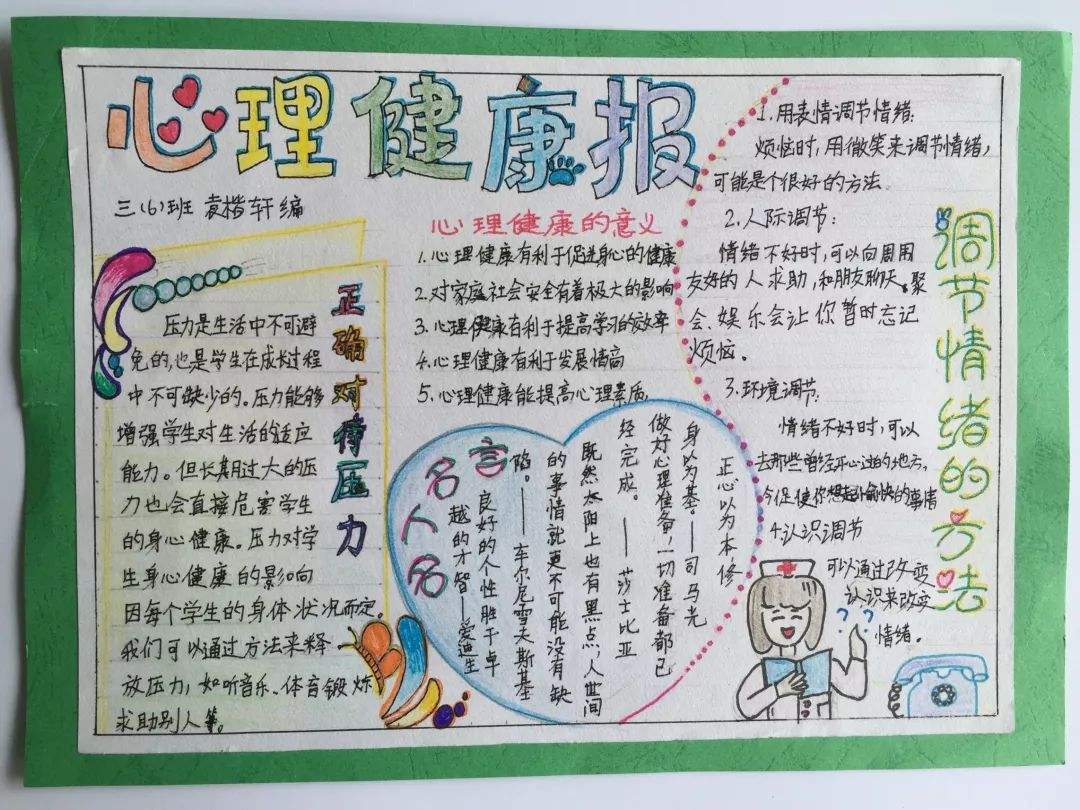 心理健康报
三(6)班 袁楷轩编
正确对待压力
压力是生活中不可避
免的,也是学生在成长过程
中不可缺少的。压力能够
增强学生对生活的适应
能力。但长期过大的压
力也会直接危害学生
的身心健康。压力对学
生身心健康的影响
因每个学生的身体状况而定。
我们可以通过方法来释
放压力,如听音乐、体育锻炼
求助别人等。
心理健康的意义
1.心理健康有利于促进身心的健康
2.对家庭社会安全有着极大的影响
3.心理健康有利于提高学习的效率
4.心理健康有利于发展情高
5.心理健康能提高心理素质
名人名言
正心以为本修
身以为基。——司马光
做好心理准备,一切准备都已
经完成。——莎士比亚
既然太阳上也有黑点,人世间
的事情就更不可能没有缺
陷。——车尔尼雪夫斯基
良好的个性胜于卓
越的才智——爱迪生
调节情绪的方法
1.用表情调节情绪:
烦恼时,用微笑来调节情绪,
可能是个很好的方法。
2.人际调节:
情绪不好时,可以向周用
友好的人求助,和朋友聊天、聚
会、娱乐会让你暂时忘记
烦恼。
3.环境调节:
情绪不好时,可以
去那些曾经开心过的地方,
会促使你想起愉快的事情
4.认识调节
可以通过改变
认识来改变
情绪。
? ?